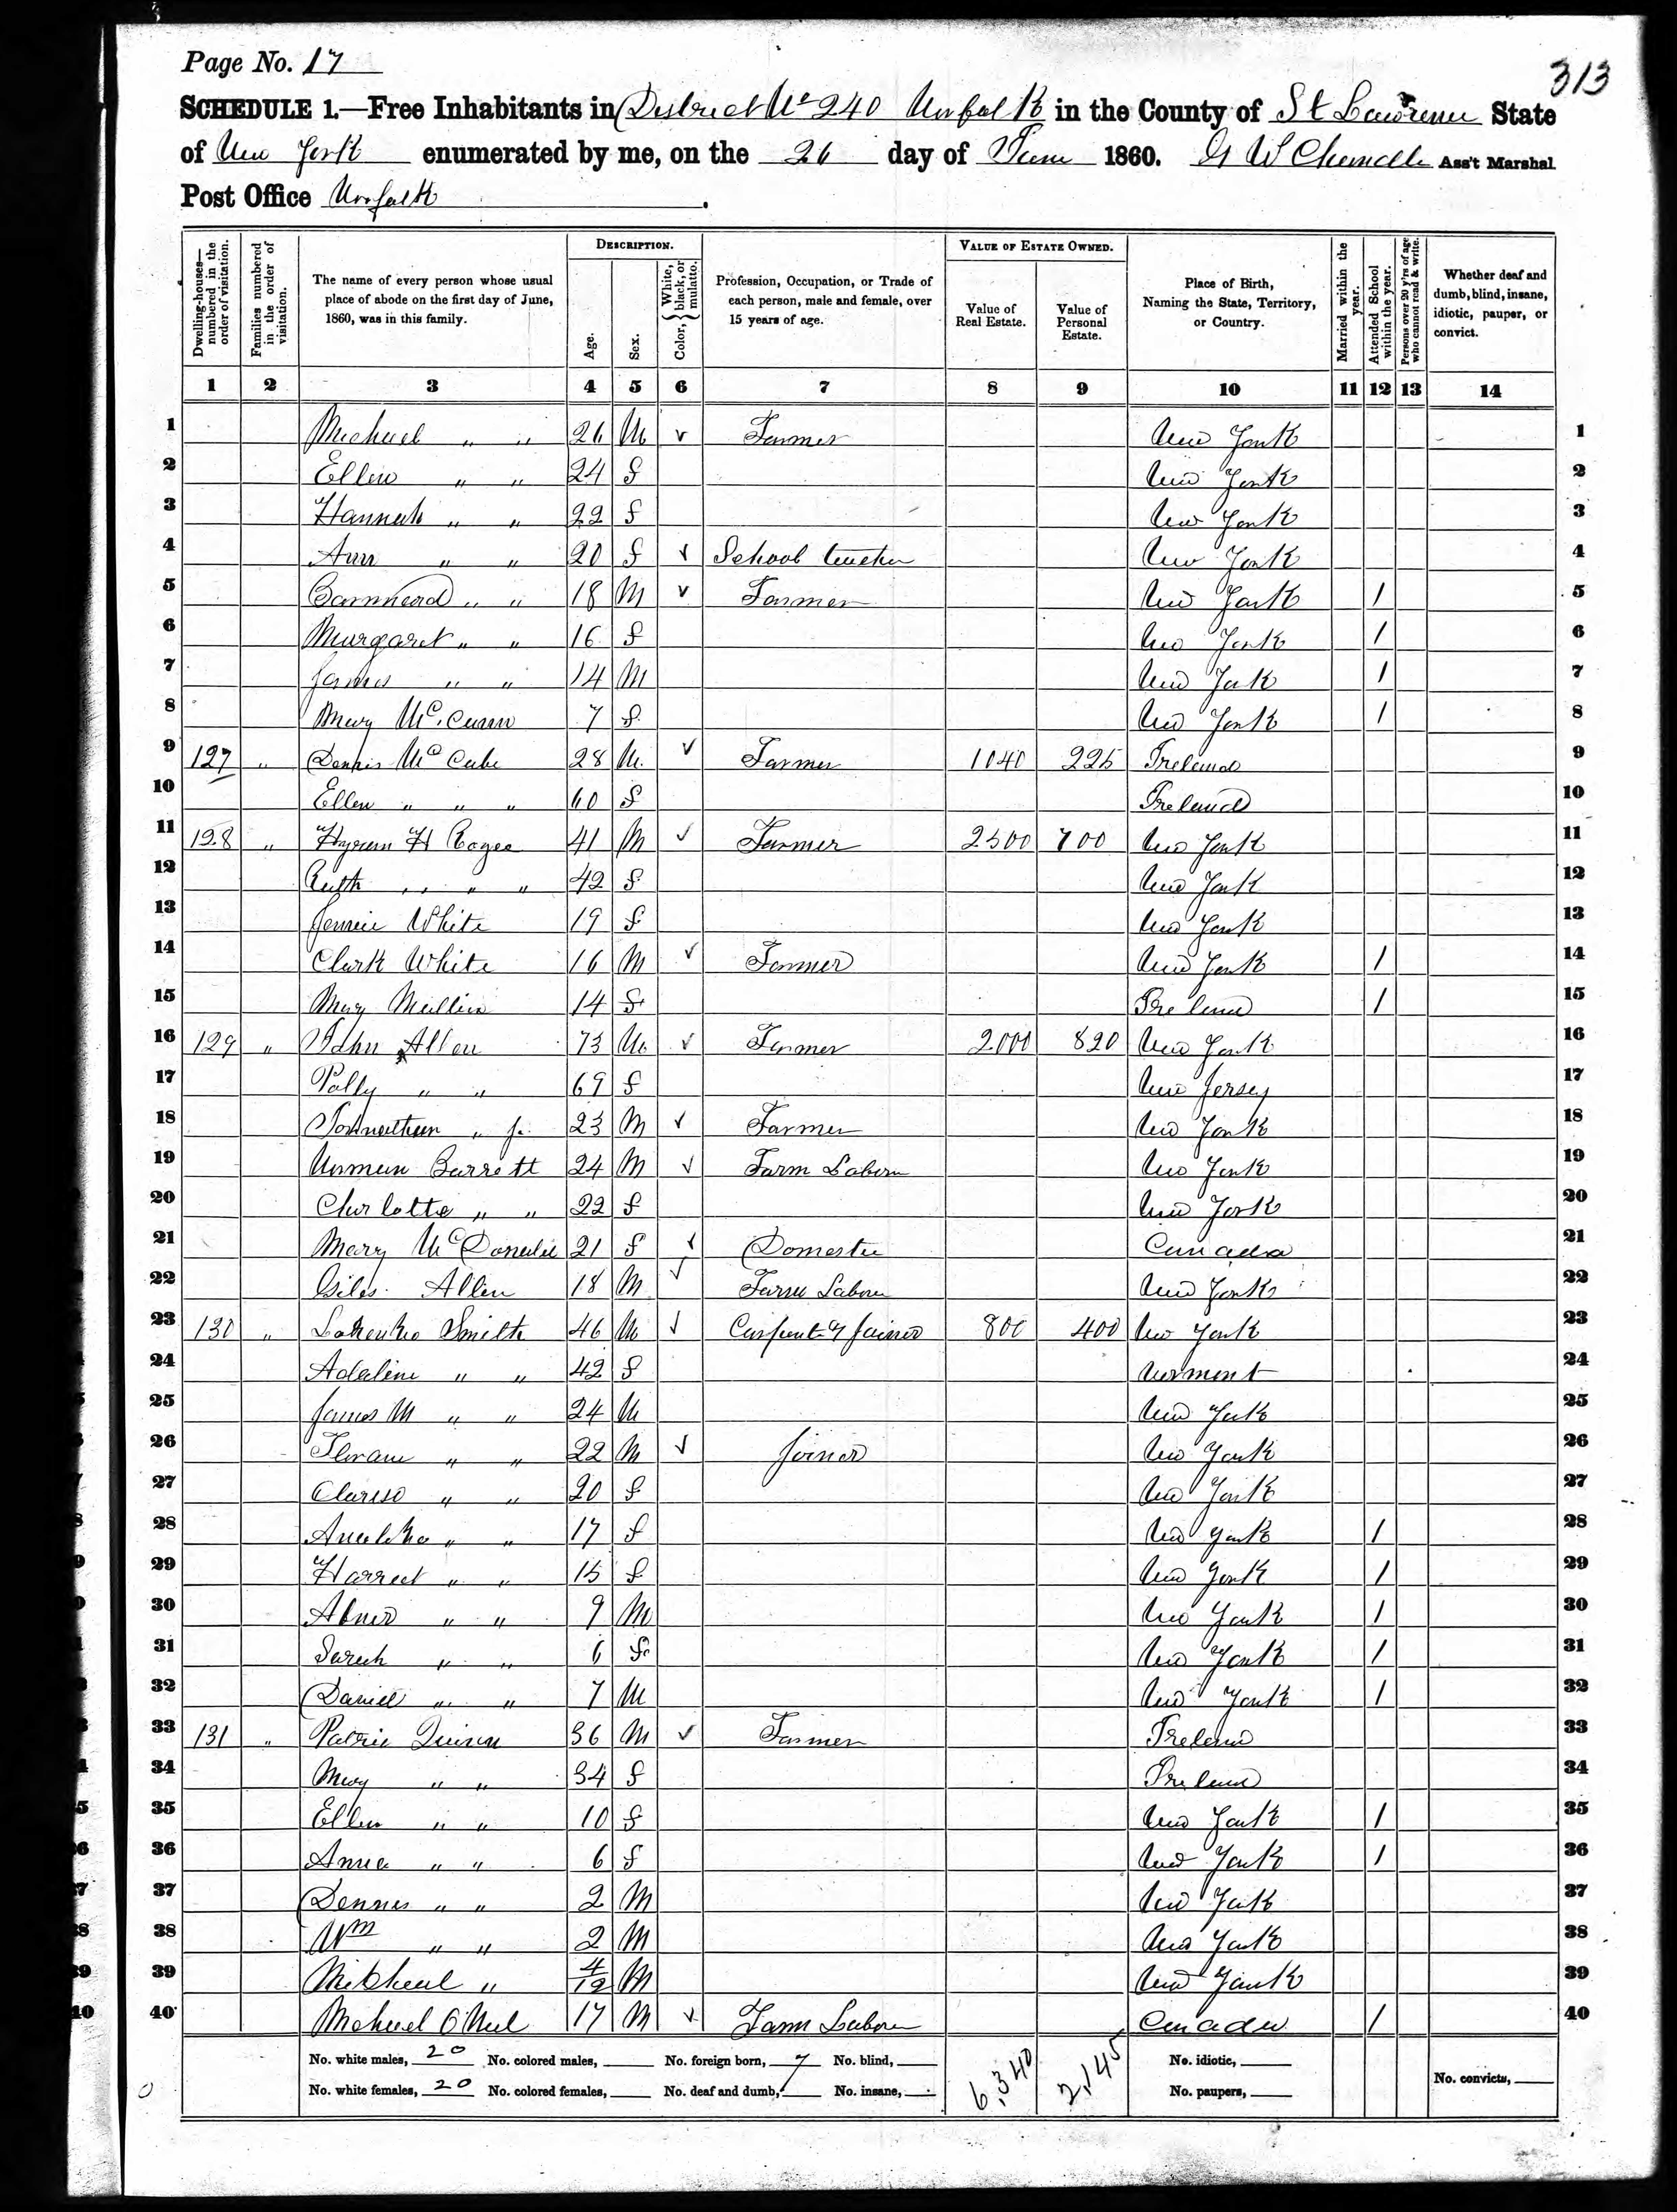 Page No. 17
313
SCHEDULE 1.—Free Inhabitants in District No 240 Norfolk in the County of St Lawrence State
of New York enumerated by me, on the 26 day of June 1860. G W Chandle Ass't Marshal
Post Office Norfolk.
Dwelling-houses—numbered in the order of visitation.
Families numbered in the order of visitation.
The name of every person whose usual place of abode on the first day of June, 1860, was in this family.
DESCRIPTION.
Age.
Sex.
Color, { White, black, or mulatto.
Profession, Occupation, or Trade of each person, male and female, over 15 years of age.
VALUE OF ESTATE OWNED.
Value of Real Estate.
Value of Personal Estate.
Place of Birth, Naming the State, Territory, or Country.
Married within the year.
Attended School within the year.
Persons over 20 y'rs of age who cannot read & write.
Whether deaf and dumb, blind, insane, idiotic, pauper, or convict.
1 2 3 4 5 6 7 8 9 10 11 12 13 14
1 Michael " " 26 M v Farmer New York 1
2 Ellen " " 24 f New York 2
3 Hannah " " 22 f New York 3
4 Ann " " 20 f v School teacher New York 4
5 " " 18 M v Farmer New York / 5
6 Margaret " " 16 f New York / 6
7 James " " 14 M New York / 7
8 Mary 7 f New York / 8
9 127 " Dennis McCabe 28 M v Farmer 1040 225 Ireland 9
10 Ellen " " " 60 f Ireland 10
11 128 " Hyrum H 41 M v Farmer 2500 700 New York 11
12 Ruth " " " 42 f New York 12
13 Jennie White 19 f New York 13
14 Clark White 16 M v Farmer New York / 14
15 Mary Mullin 14 f Ireland / 15
16 129 " John Allen 73 M v Farmer 2000 820 New York 16
17 Polly " " 69 f New Jersey 17
18 Jonnathan " jr 23 M v Farmer New York 18
19 Norman Barrett 24 M v Farm Labor New York 19
20 Charlotte " " 22 f New York 20
21 Mary McDonald 21 f v Domestic Canada 21
22 Giles Allen 18 M v Farm Labor New York 22
23 130 " Lorenzo Smith 46 M v Carpenter & joiner 800 400 New York 23
24 Adaline " " 42 f Vermont 24
25 James M " " 24 M New York 25
26 Hiram " " 22 M v Joiner New York 26
27 " " 20 f New York 27
28 " " 17 f New York / 28
29 Harriet " " 15 f New York / 29
30 Abner " " 9 M New York / 30
31 Sarah " " 6 f New York / 31
32 Daniel " " 7 M New York / 32
33 131 " Patric Quinn 36 M v Farmer Ireland 33
34 Mary " " 34 f Ireland 34
35 Ellen " " 10 f New York / 35
36 Anna " " 6 f New York / 36
37 Dennis " " 2 M New York 37
38 Wm " " 2 M New York 38
39 Micheal " 4/12 M New York 39
40 Michael O Neel 17 M v Farm Labor Canada / 40
No. white males, 20 No. colored males, No. foreign born, 7 No. blind, 6,340 2,145 No. idiotic,
No. white females, 20 No. colored females, No. deaf and dumb, No. insane, No. paupers, No. convicts,